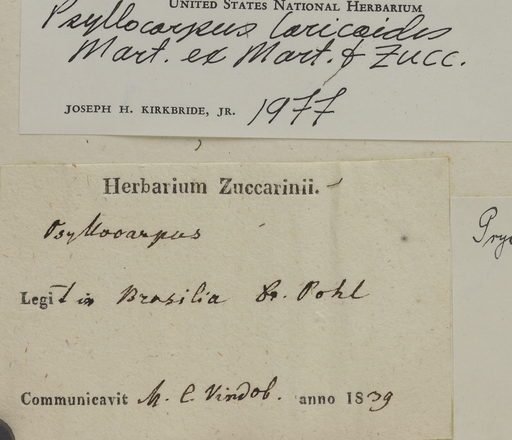 United States National Herbarium
Psyllocarpus laricoides
Mart. ex Mart. & Zucc.
Joseph H. Kirkbride, Jr. 1977
Herbarium Zuccarinii.
Psyllocarpus
Legit in Brasilia Dr. Pohl
Communicavit M. C. Vindob. anno 1839